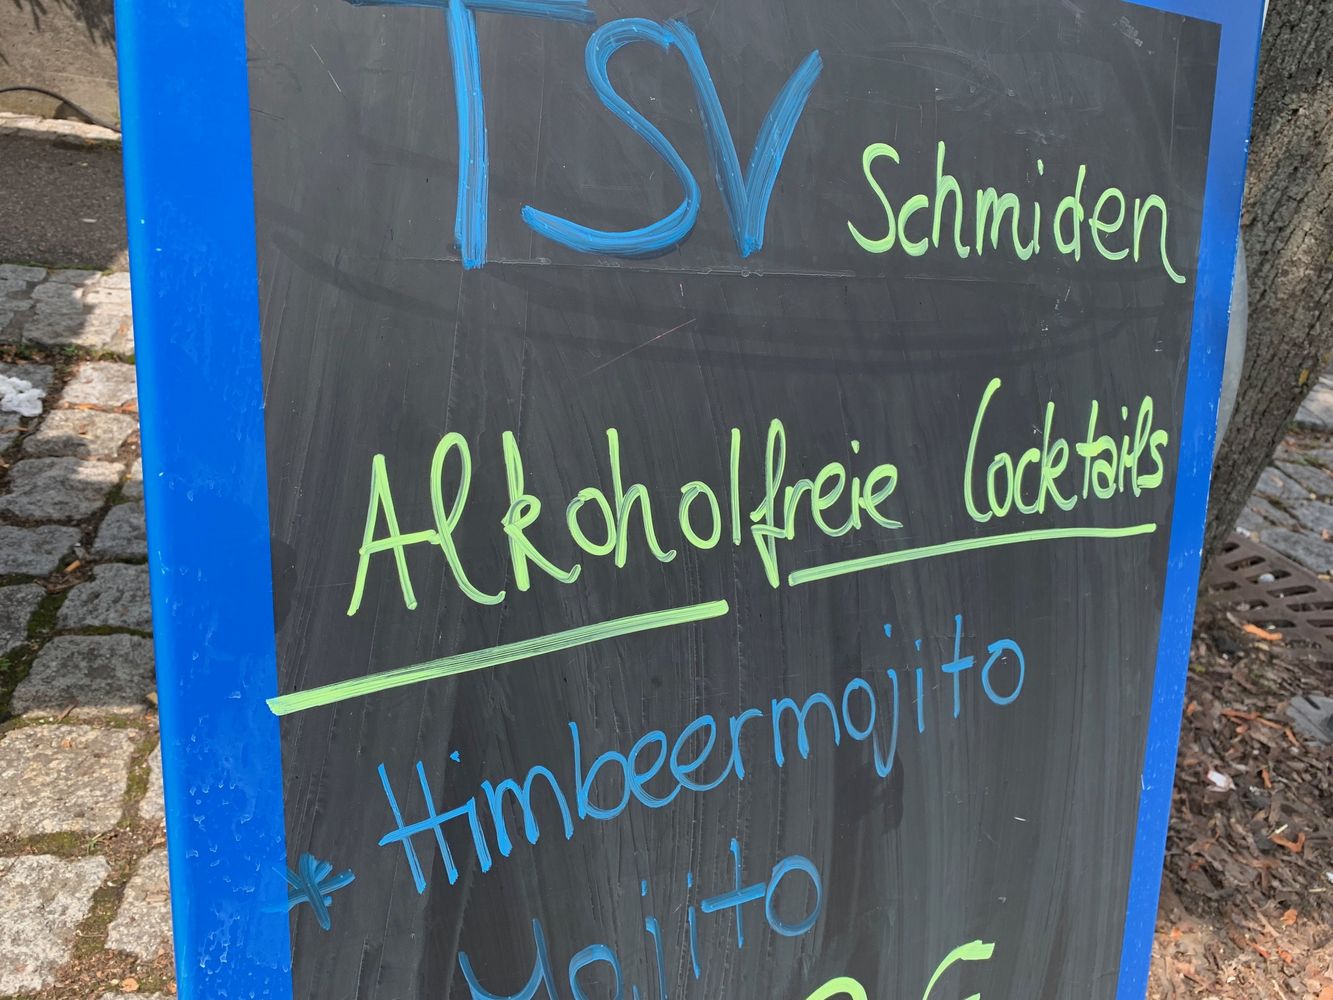 TSV Schmiden
Alkoholfreie Cocktails
* Himbeermojito
Mojito